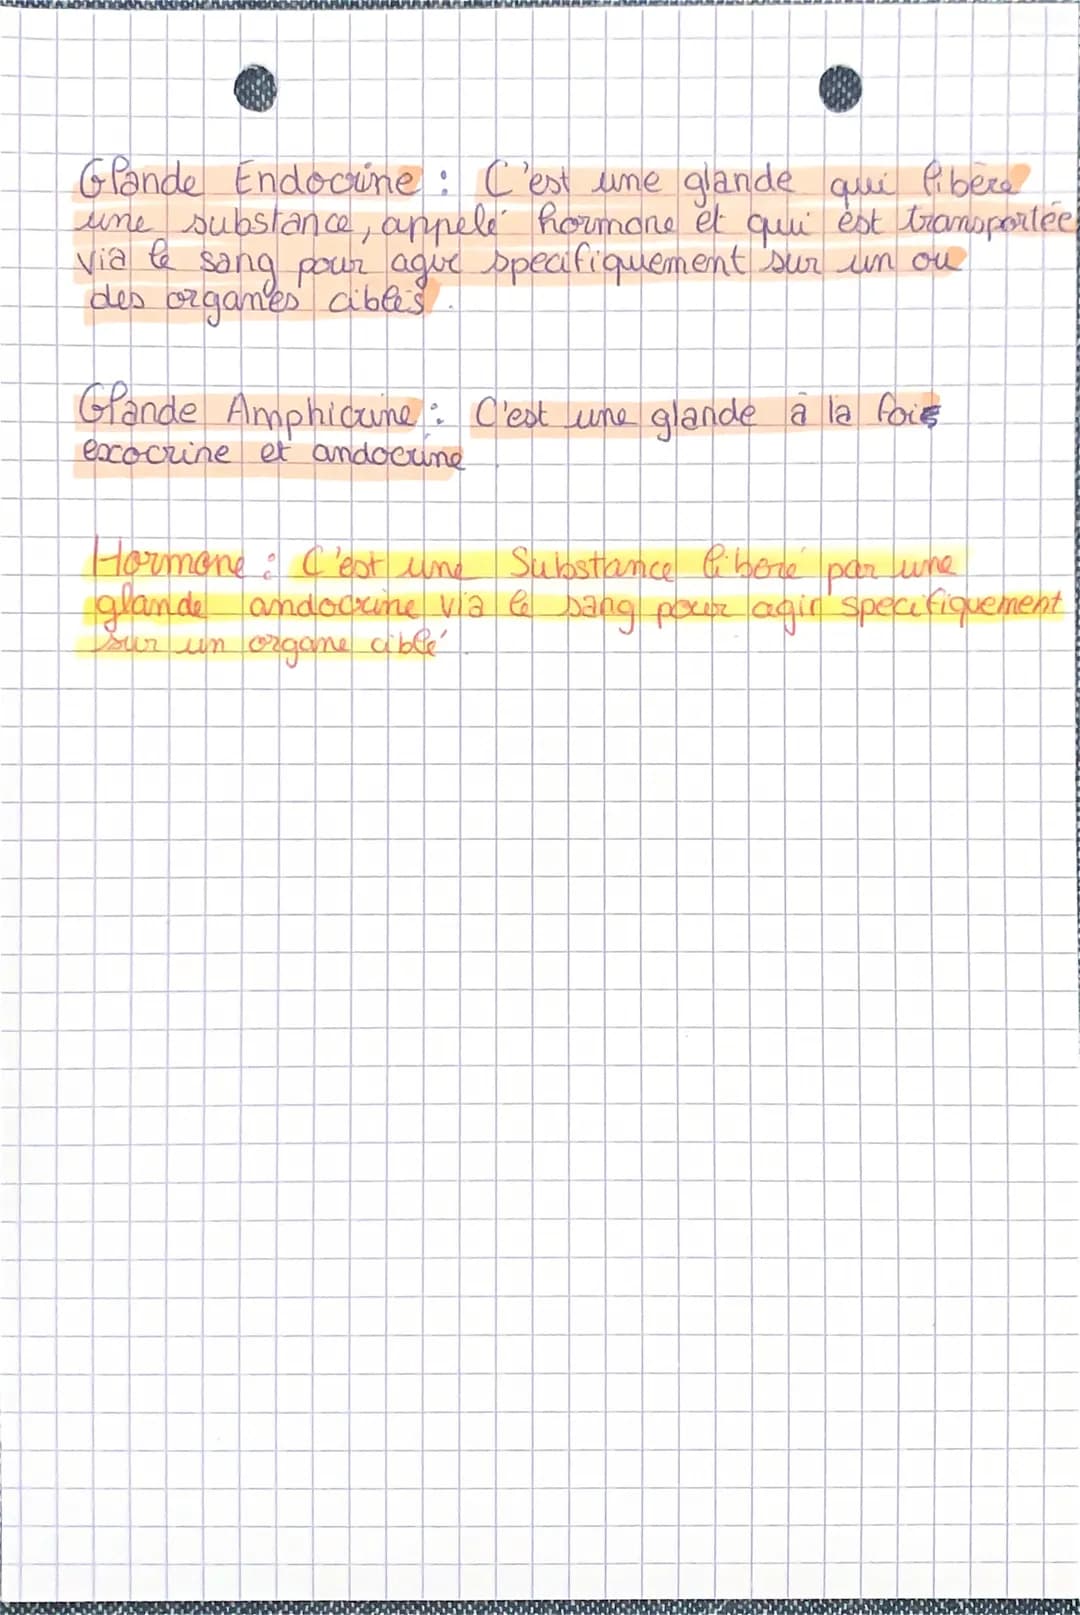 Glande Endocrine : C'est une glande qui libère
une substance, appelé hormone et qui est transportée
via le sang pour agir specifiquement sur un ou
des organes ciblés.
Glande Amphicrine : C'est une glande à la fois
exocrine et andocrine
Hormone : C'est une Substance liberé par une
glande andocrine via le sang pour agir specifiquement
sur un organe ciblé.